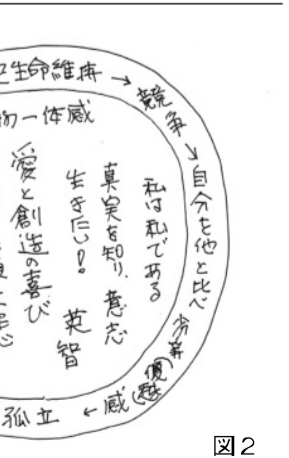 生命維持→競争→自分を他と比べ劣等(優越)感←孤立
物一体感
私は私である
真実を知り、意志
生きたい！ 英智
愛と創造の喜び
図2